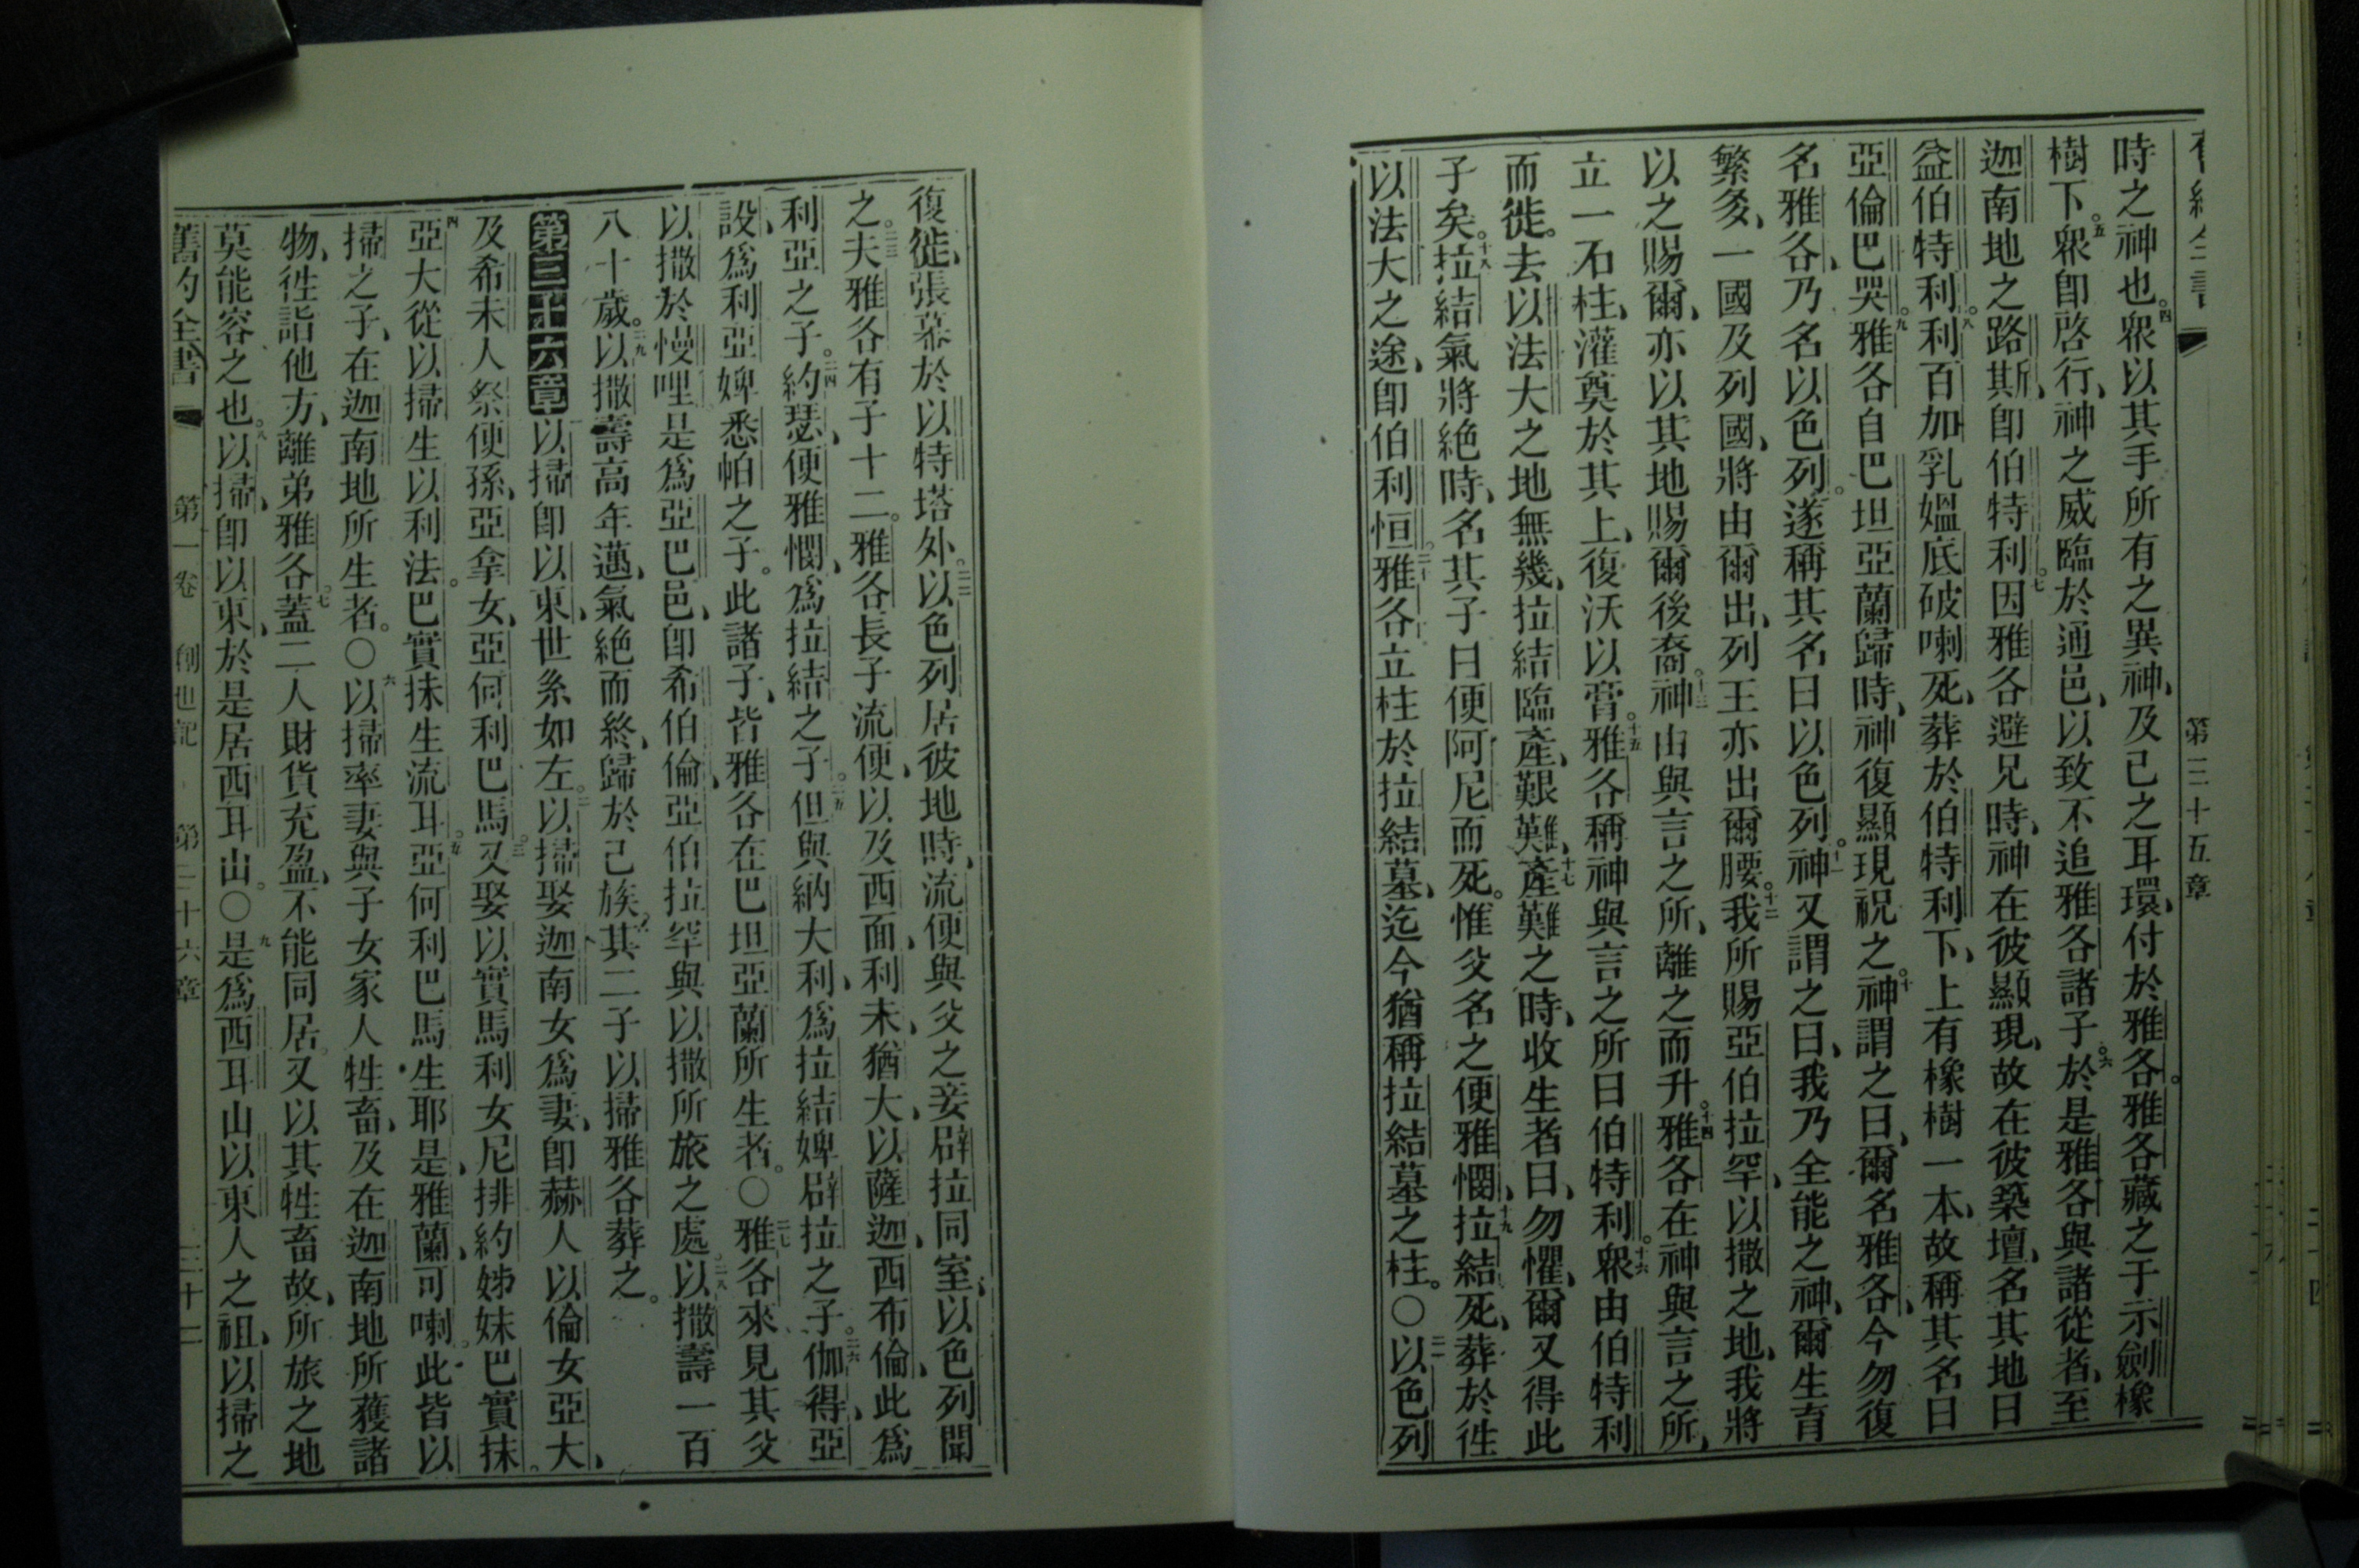 第三十五章
時之神也。四衆以其手所有之異神、及己之耳環、付於雅各。雅各藏之于示劍橡
樹下。五衆卽啓行、神之威臨於通邑、以致不追雅各諸子。六於是雅各與諸從者、至
迦南地之路斯、卽伯特利。七因雅各避兄時、神在彼顯現、故在彼築壇、名其地曰
益伯特利。八利百加乳媼底破喇死、葬於伯特利下、上有橡樹一本、故稱其名曰
亞倫巴哭。九雅各自巴坦亞蘭歸時、神復顯現祝之。十神謂之曰、爾名雅各、今勿復
名雅各、乃名以色列。遂稱其名曰以色列。十一神又謂之曰、我乃全能之神、爾生育
繁多、一國及列國、將由爾出、列王亦出爾腰。十二我所賜亞伯拉罕、以撒之地、我將
以之賜爾、亦以其地賜爾後裔。十三神由與言之所、離之而升。十四雅各在神與言之所、
立一石柱、灌奠於其上、復沃以膏。十五雅各稱神與言之所曰伯特利。十六衆由伯特利
而徙。去以法大之地無幾、拉結臨產、艱難、十七產難之時、收生者曰、勿懼、爾又得此
子矣。十八拉結氣將絕時、名其子曰便阿尼而死。惟父名之便雅憫、十九拉結死、葬於往
以法大之途、卽伯利恒。二十雅各立柱於拉結墓、迄今猶稱拉結墓之柱。○二一以色列
復徙、張幕於以特塔外。二二以色列居彼地時、流便與父之妾辟拉同室、以色列聞
之。二三夫雅各有子十二。雅各長子流便、以及西面、利未、猶大、以薩迦、西布倫、此爲
利亞之子。二四約瑟、便雅憫、爲拉結之子。二五但與納大利、爲拉結婢辟拉之子。二六伽得、亞
設、爲利亞婢悉帕之子。此諸子、皆雅各在巴坦亞蘭所生者。○二七雅各來見其父
以撒於慢哩、是爲亞巴邑、卽希伯倫、亞伯拉罕與以撒所旅之處。二八以撒壽一百
八十歲。二九以撒壽高年邁、氣絕而終、歸於己族。其二子以掃雅各葬之。
第三十六章一以掃卽以東、世系如左。二以掃娶迦南女爲妻、卽赫人以倫女亞大、
及希未人祭便孫、亞拿女、亞何利巴馬。三又娶以實馬利女尼排約姊妹巴實抹。
四亞大從以掃生以利法。巴實抹生流耳。五亞何利巴馬生耶是、雅蘭、可喇。此皆以
掃之子、在迦南地所生者。○六以掃率妻與子女家人牲畜、及在迦南地所獲諸
物、徃詣他方、離弟雅各。七蓋二人財貨充盈、不能同居。又以其牲畜故、所旅之地
莫能容之也。八以掃、卽以東、於是居西耳山。○九是爲西耳山以東人之祖、以掃之
舊約全書 第一卷 創世記 第三十六章 三十二